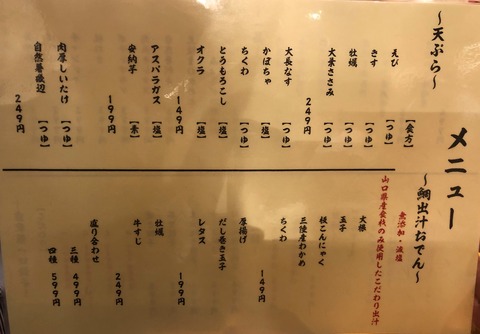 メニュー
～天ぷら～
【食方】
えび 【つゆ】
きす 【つゆ】
牡蠣 【つゆ】
大葉ささみ 【つゆ】
249円
大長なす 【つゆ】
かぼちゃ 【塩】
ちくわ 【つゆ】
とうもろこし 【塩】
オクラ 【つゆ】
149円
アスパラガス 【塩】
安納芋 【素】
199円
肉厚しいたけ 【つゆ】
自然薯磯辺 【つゆ】
249円
～鯛出汁おでん～
無添加・減塩
山口県産食材のみ使用したこだわり出汁
大根
玉子
板こんにゃく
三陸産わかめ
ちくわ
149円
厚揚げ
だし巻き玉子
レタス
199円
牡蠣
牛すじ
249円
盛り合わせ
三種 499円
四種 599円